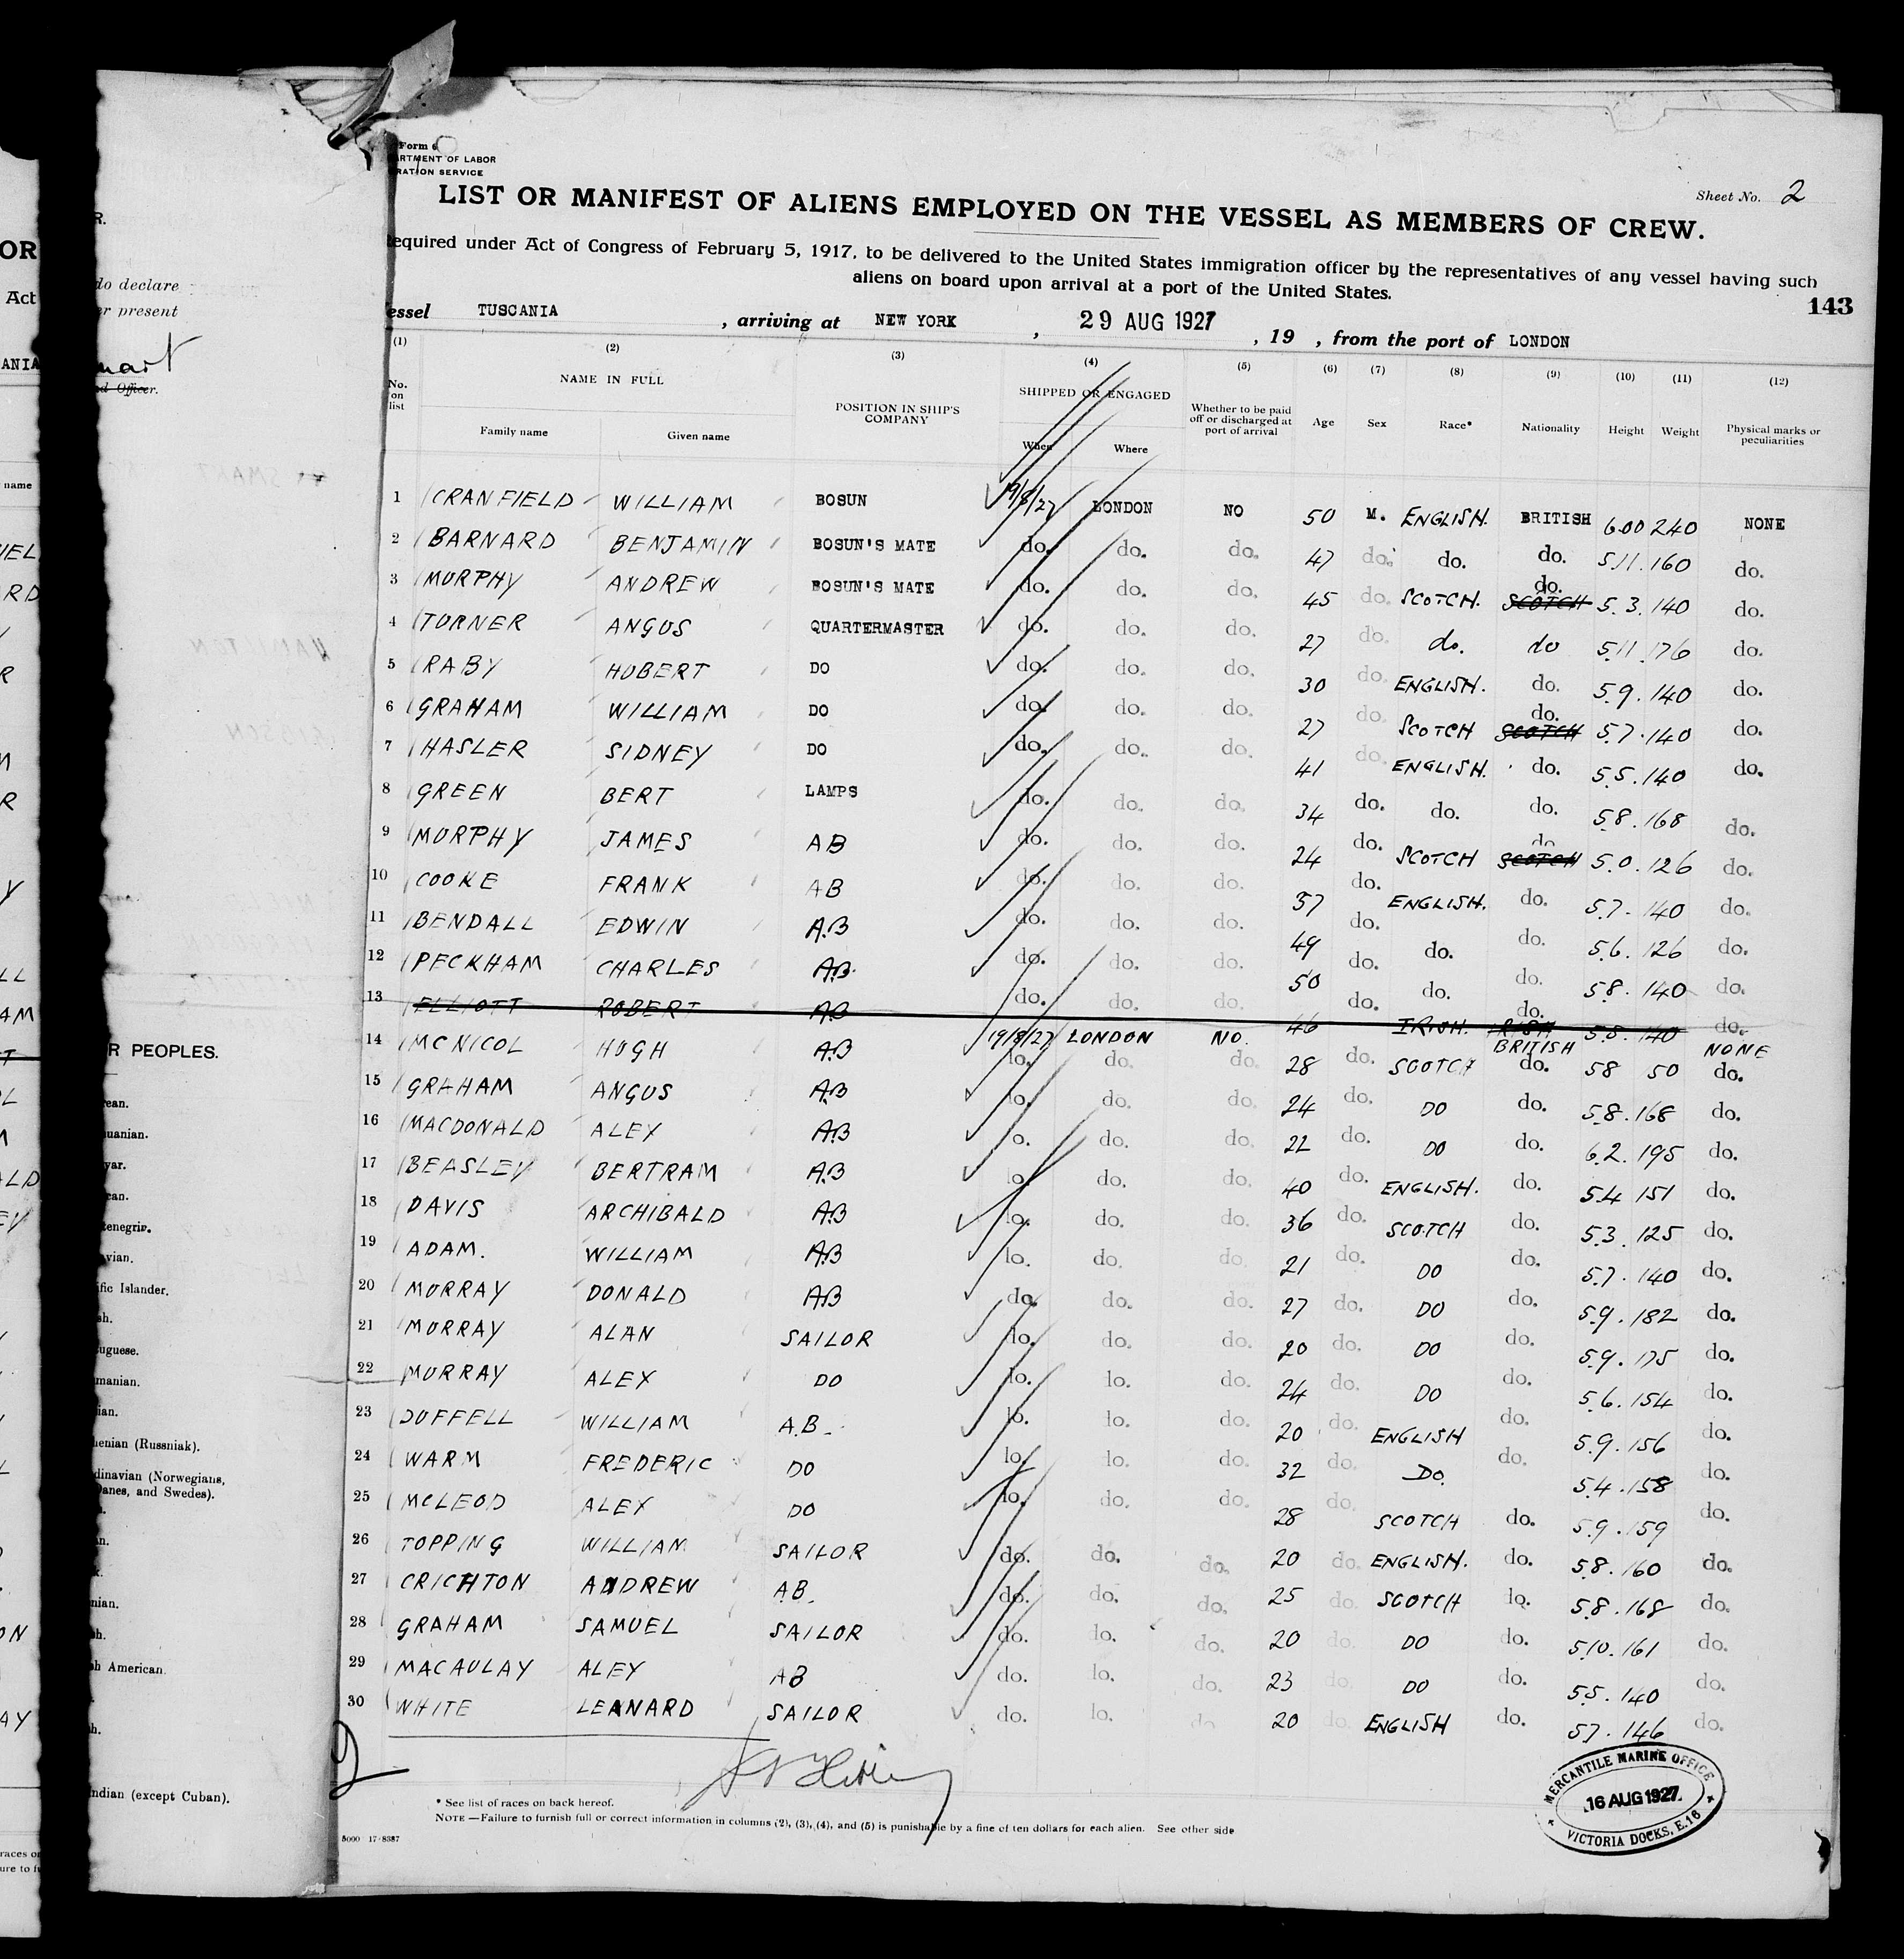 Form 6
LIST OR MANIFEST OF ALIENS EMPLOYED ON THE VESSEL AS MEMBERS OF CREW.
Sheet No. 2
Required under Act of Congress of February 5, 1917, to be delivered to the United States immigration officer by the representatives of any vessel having such
aliens on board upon arrival at a port of the United States.
143
TUSCANIA , arriving at NEW YORK , 29 AUG 1927 , 19 , from the port of LONDON
(1) (2) (3) (4) (5) (6) (7) (8) (9) (10) (11) (12)
No. on list NAME IN FULL Family name Given name POSITION IN SHIP'S COMPANY SHIPPED OR ENGAGED When Where Whether to be paid off or discharged at port of arrival Age Sex Race* Nationality Height Weight Physical marks or peculiarities
1 CRANFIELD WILLIAM BOSUN 19/8/27 LONDON NO 50 M. ENGLISH. BRITISH 6.00 240 NONE
2 BARNARD BENJAMIN BOSUN'S MATE do. do. do. 47 do. do. do. 5.11. 160 do.
3 MURPHY ANDREW BOSUN'S MATE do. do. do. 45 do. SCOTCH. do. SCOTCH 5.3. 140 do.
4 TURNER ANGUS QUARTERMASTER do. do. do. 27 do. do. do 5.11 176 do.
5 RABY HUBERT DO do. do. do. 30 do. ENGLISH. do. 5.9. 140 do.
6 GRAHAM WILLIAM DO do. do. do. 27 do. SCOTCH do. SCOTCH 5.7. 140 do.
7 HASLER SIDNEY DO do. do. do. 41 do. ENGLISH. do. 5.5. 140 do.
8 GREEN BERT LAMPS do. do. do. 34 do. do. do. 5.8. 168 do.
9 MURPHY JAMES AB do. do. do. 24 do. SCOTCH do SCOTCH 5.0. 126 do.
10 COOKE FRANK AB do. do. do. 37 do. ENGLISH. do. 5.7. 140 do.
11 BENDALL EDWIN A.B do. do. do. 49 do. do. do. 5.6. 126 do.
12 PECKHAM CHARLES A.B. do. do. do. 50 do. do. do. 5.8. 140 do.
13 ELLIOTT ROBERT A.B do. do. do. 46 do. IRISH. do. IRISH 5.8. 140 do.
19/8/27 LONDON NO. BRITISH NONE
14 MCNICOL HUGH A.B do. do. 28 do. SCOTCH do. 58 50 do.
15 GRAHAM ANGUS A.B do. do. 24 do. DO do. 5.8. 168 do.
16 MACDONALD ALEX A.B do. do. 22 do. DO do. 6.2. 195 do.
17 BEASLEY BERTRAM A.B do. do. 40 do. ENGLISH. do. 5.4 151 do.
18 DAVIS ARCHIBALD A.B do. do. 36 do. SCOTCH do. 5.3. 125 do.
19 ADAM. WILLIAM A.B do. do. 21 do. DO do. 5.7. 140 do.
20 MURRAY DONALD A.B do. do. do. 27 do. DO do. 5.9. 182 do.
21 MURRAY ALAN SAILOR do. do. 20 do. DO do. 5.9. 175 do.
22 MURRAY ALEX DO do. 24 do. DO do. 5.6. 154 do.
23 DUFFELL WILLIAM A.B. do. 20 do. ENGLISH do. 5.9. 156 do.
24 WARM FREDERIC DO do. 32 do. DO. do. 5.4. 158 do.
25 MCLEOD ALEX DO do. do. 28 do. SCOTCH do. 5.9. 159 do.
26 TOPPING WILLIAM SAILOR do. do. do. 20 do. ENGLISH. do. 5.8. 160 do.
27 CRICHTON ANDREW A.B. do. do. do. 25 do. SCOTCH do. 5.8. 168 do.
28 GRAHAM SAMUEL SAILOR do. do. 20 do. DO do. 5.10. 161 do.
29 MACAULAY ALEX AB do. do. 23 do. DO do. 5.5. 140 do.
30 WHITE LEANARD SAILOR do. do 20 do. ENGLISH do. 5.7. 146 do.
2
* See list of races on back hereof.
NOTE.—Failure to furnish full or correct information in columns (2), (3), (4), and (5) is punishable by a fine of ten dollars for each alien. See other side
MERCANTILE MARINE OFFICE
16 AUG 1927
VICTORIA DOCKS, E.16
do declare
present
Officer.
PEOPLES.
Islander.
(Russniak).
(Norwegians,
Danes, and Swedes).
American.
Indian (except Cuban).